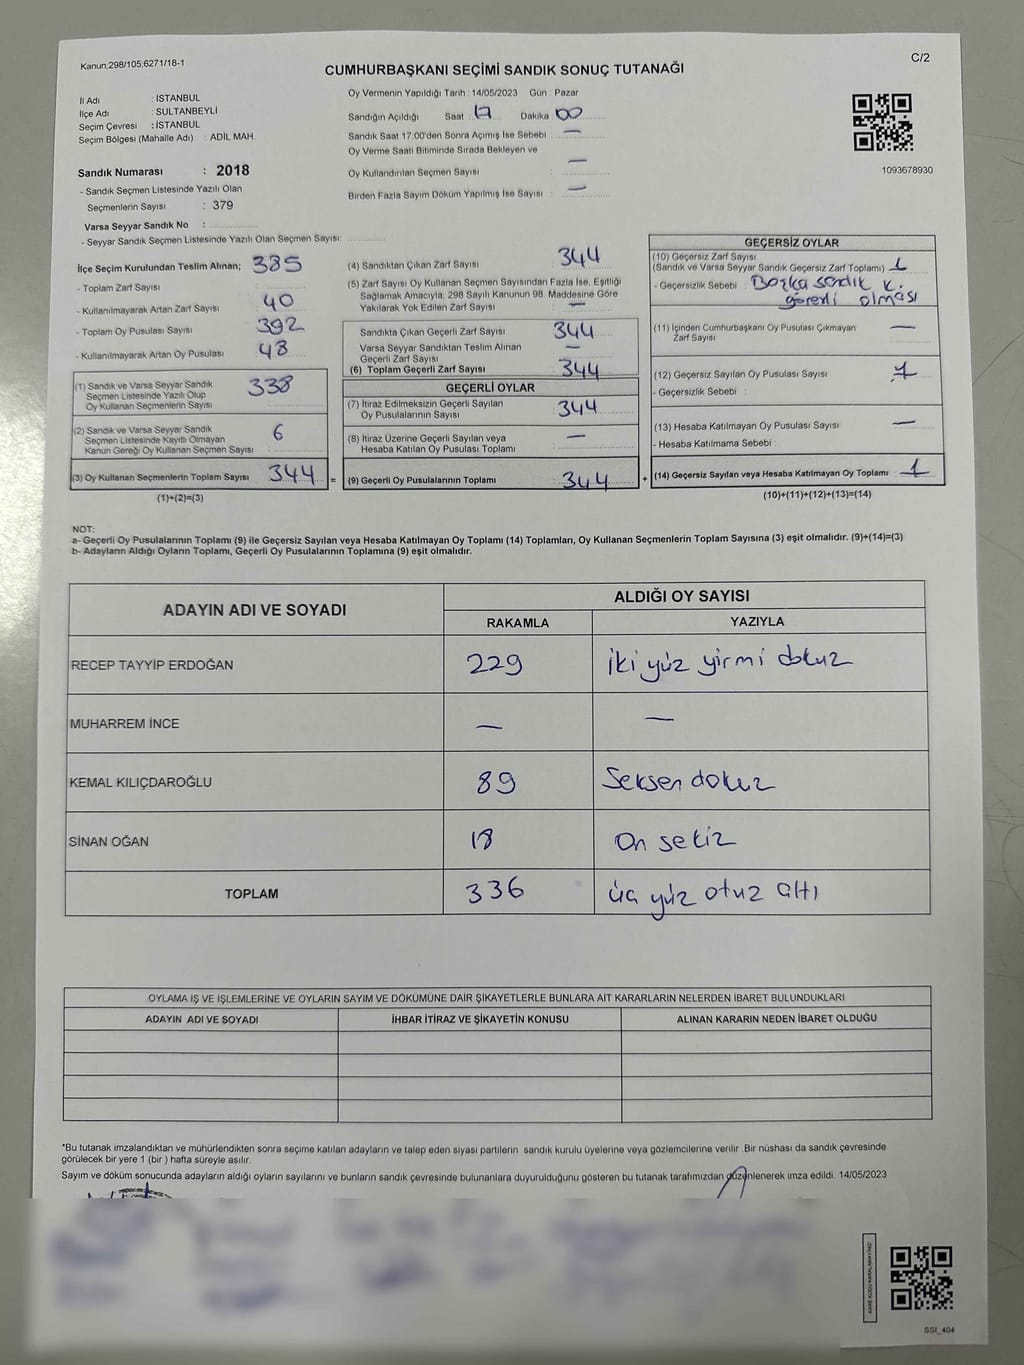 Kanun;298/105;6271/18-1
C/2
CUMHURBAŞKANI SEÇİMİ SANDIK SONUÇ TUTANAĞI
İl Adı : İSTANBUL
İlçe Adı : SULTANBEYLİ
Seçim Çevresi : İSTANBUL
Seçim Bölgesi (Mahalle Adı) : ADİL MAH.
Oy Vermenin Yapıldığı Tarih : 14/05/2023 Gün : Pazar
Sandığın Açıldığı Saat 17 Dakika 00
Sandık Saat 17:00'den Sonra Açımış İse Sebebi —
Oy Verme Saati Bitiminde Sırada Bekleyen ve
Oy Kullandırılan Seçmen Sayısı : —
Birden Fazla Sayım Döküm Yapılmış İse Sayısı : —
1093678930
Sandık Numarası : 2018
- Sandık Seçmen Listesinde Yazılı Olan
Seçmenlerin Sayısı : 379
Varsa Seyyar Sandık No :
- Seyyar Sandık Seçmen Listesinde Yazılı Olan Seçmen Sayısı:
İlçe Seçim Kurulundan Teslim Alınan; 385
- Toplam Zarf Sayısı :
- Kullanılmayarak Artan Zarf Sayısı : 40
- Toplam Oy Pusulası Sayısı : 392
- Kullanılmayarak Artan Oy Pusulası : 48
(1) Sandık ve Varsa Seyyar Sandık
Seçmen Listesinde Yazılı Olup
Oy Kullanan Seçmenlerin Sayısı : 338
(2) Sandık ve Varsa Seyyar Sandık
Seçmen Listesinde Kayıtlı Olmayan
Kanun Gereği Oy Kullanan Seçmen Sayısı : 6
(3) Oy Kullanan Seçmenlerin Toplam Sayısı : 344 =
(1)+(2)=(3)
(4) Sandıktan Çıkan Zarf Sayısı : 344
(5) Zarf Sayısı Oy Kullanan Seçmen Sayısından Fazla İse, Eşitliği
Sağlamak Amacıyla; 298 Sayılı Kanunun 98. Maddesine Göre
Yakılarak Yok Edilen Zarf Sayısı : —
Sandıkta Çıkan Geçerli Zarf Sayısı : 344
Varsa Seyyar Sandıktan Teslim Alınan
Geçerli Zarf Sayısı : —
(6) Toplam Geçerli Zarf Sayısı : 344
GEÇERLİ OYLAR
(7) İtiraz Edilmeksizin Geçerli Sayılan
Oy Pusulalarının Sayısı : 344
(8) İtiraz Üzerine Geçerli Sayılan veya
Hesaba Katılan Oy Pusulası Toplamı : —
(9) Geçerli Oy Pusulalarının Toplamı : 344 +
GEÇERSİZ OYLAR
(10) Geçersiz Zarf Sayısı
(Sandık ve Varsa Seyyar Sandık Geçersiz Zarf Toplamı) : 1
- Geçersizlik Sebebi : Başka sandık K.
görevli olması
(11) İçinden Cumhurbaşkanı Oy Pusulası Çıkmayan
Zarf Sayısı : —
(12) Geçersiz Sayılan Oy Pusulası Sayısı : 1
- Geçersizlik Sebebi :
(13) Hesaba Katılmayan Oy Pusulası Sayısı : —
- Hesaba Katılmama Sebebi :
(14) Geçersiz Sayılan veya Hesaba Katılmayan Oy Toplamı : 1
(10)+(11)+(12)+(13)=(14)
NOT:
a- Geçerli Oy Pusulalarının Toplamı (9) ile Geçersiz Sayılan veya Hesaba Katılmayan Oy Toplamı (14) Toplamları, Oy Kullanan Seçmenlerin Toplam Sayısına (3) eşit olmalıdır. (9)+(14)=(3)
b- Adayların Aldığı Oyların Toplamı, Geçerli Oy Pusulalarının Toplamına (9) eşit olmalıdır.
ADAYIN ADI VE SOYADI ALDIĞI OY SAYISI
RAKAMLA YAZIYLA
RECEP TAYYİP ERDOĞAN 229 iki yüz yirmi dokuz
MUHARREM İNCE — —
KEMAL KILIÇDAROĞLU 89 Seksen dokuz
SİNAN OĞAN 18 On sekiz
TOPLAM 336 üç yüz otuz altı
OYLAMA İŞ VE İŞLEMLERİNE VE OYLARIN SAYIM VE DÖKÜMÜNE DAİR ŞİKAYETLERLE BUNLARA AİT KARARLARIN NELERDEN İBARET BULUNDUKLARI
ADAYIN ADI VE SOYADI İHBAR İTİRAZ VE ŞİKAYETİN KONUSU ALINAN KARARIN NEDEN İBARET OLDUĞU
*Bu tutanak imzalandıktan ve mühürlendikten sonra seçime katılan adayların ve talep eden siyasi partilerin sandık kurulu üyelerine veya gözlemcilerine verilir. Bir nüshası da sandık çevresinde
görülecek bir yere 1 (bir ) hafta süreyle asılır.
Sayım ve döküm sonucunda adayların aldığı oyların sayılarını ve bunların sandık çevresinde bulunanlara duyurulduğunu gösteren bu tutanak tarafımızdan düzenlenerek imza edildi. 14/05/2023
KARE KODU KARALAMAYINIZ!
SSI_404